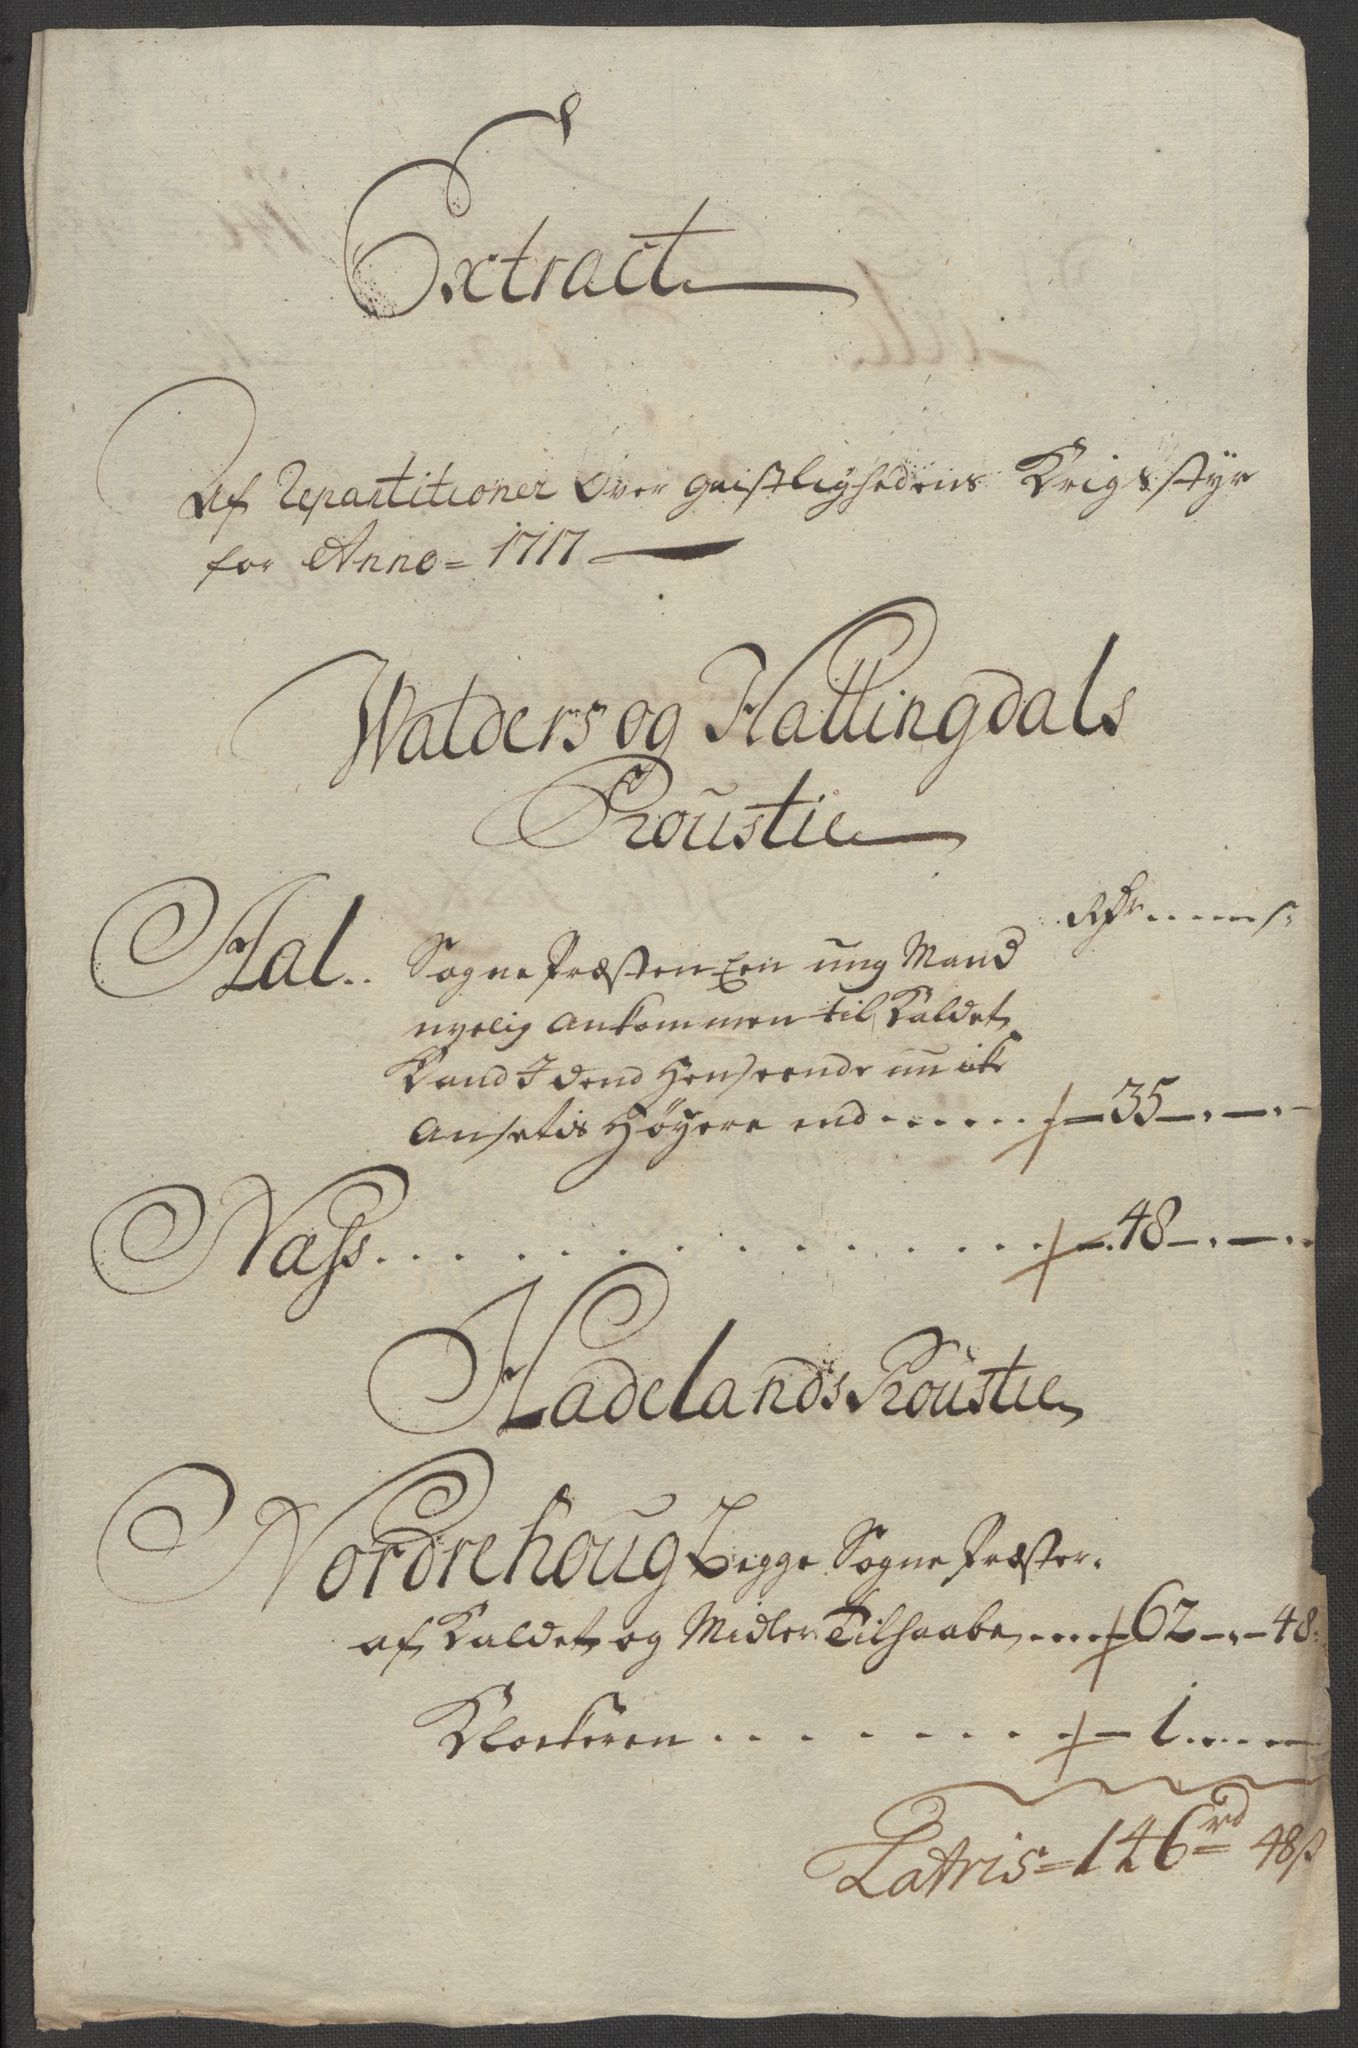 Extract
Af Repartitioner Over Geistlighedens Krigsstyr
for Anno = 1717
Walders og Hallingdals
Proustie
Rdr ... s:
Aal.. Sogne Præsten Een ung Mand
nyelig ankommen til Kaldet
Kand I dend Henseende nu ike
Ansetis Høyere end . . . . . . — 35 — . — . —
Næss . . . . . . . . . . . . — 48 — . — . .
Hadelands Proustie
Nordrehoug Begge Sogne Præster
af Kaldet og Midler Tilhaabe . . . . 62 — . — 48:
Klockeren . . . . . . . — 1 . . . .
Latris = 146 rd 48 ß